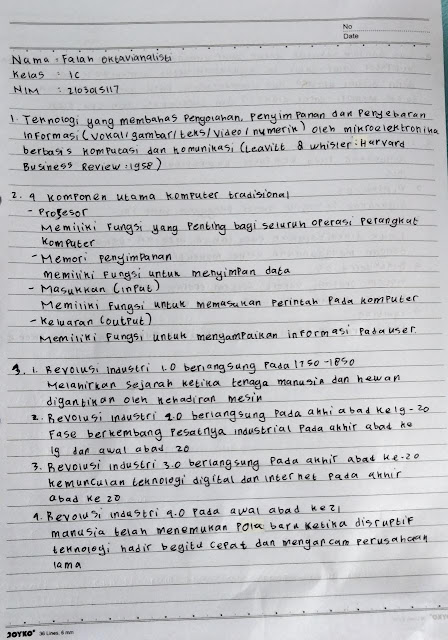 No
Date
Nama : Falah Oktavianalisti
Kelas : 1C
NIM : 2103015117
1. Teknologi yang membahas Pengolahan, Penyimpanan dan Penyebaran
Informasi (vokal/gambar/teks/video/numerik) oleh mikroelektronika
berbasis komputasi dan komunikasi (Leavitt & whisler : Harvard
Business Review : 1958)
2. 4 komponen utama komputer tradisional
- Profesor
Memiliki Fungsi yang Penting bagi seluruh operasi Perangkat
komputer
- Memori Penyimpanan
memiliki Fungsi untuk menyimpan data
- Masukkan (input)
Memiliki Fungsi untuk memasukan Perintah Pada komputer
- Keluaran (output)
Memiliki Fungsi untuk menyampaikan informasi Pada user.
3. 1. Revolusi Industri 1.0 berlangsung Pada 1750-1850
Melahirkan sejarah ketika tenaga manusia dan hewan
digantikan oleh kehadiran mesin
2. Revolusi industri 2.0 berlangsung Pada akhi abad ke 19 - 20
Fase berkembang Pesatnya industrial Pada akhir abad ke
19 dan awal abad 20
3. Revolusi industri 3.0 berlangsung Pada akhir abad ke-20
kemunculan teknologi digital dan internet Pada akhir
abad ke 20
4. Revolusi industri 4.0 Pada awal abad ke 21
manusia telah menemukan Pola baru ketika disruptif
teknologi hadir begitu cepat dan mengancam perusahaan
lama
JOYKO 36 Lines, 6 mm